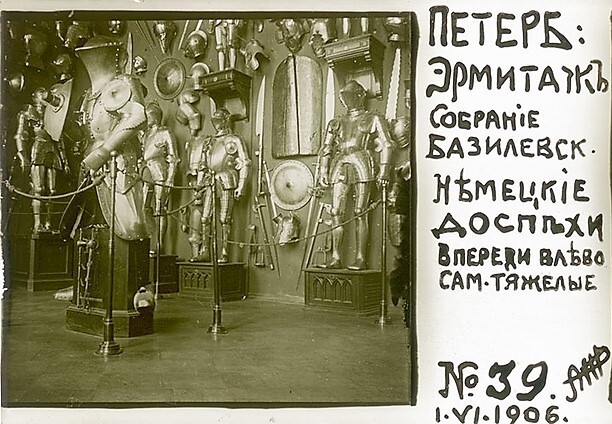 ПЕТЕРБ:
ЭРМИТАЖЪ
СОБРАНІЕ
БАЗИЛЕВСК.
НѢМЕЦКІЕ
ДОСПѢХИ
ВПЕРЕДИ ВЛѢВО
САМ. ТЯЖЕЛЫЕ
№ 39.
1.VI.1906.